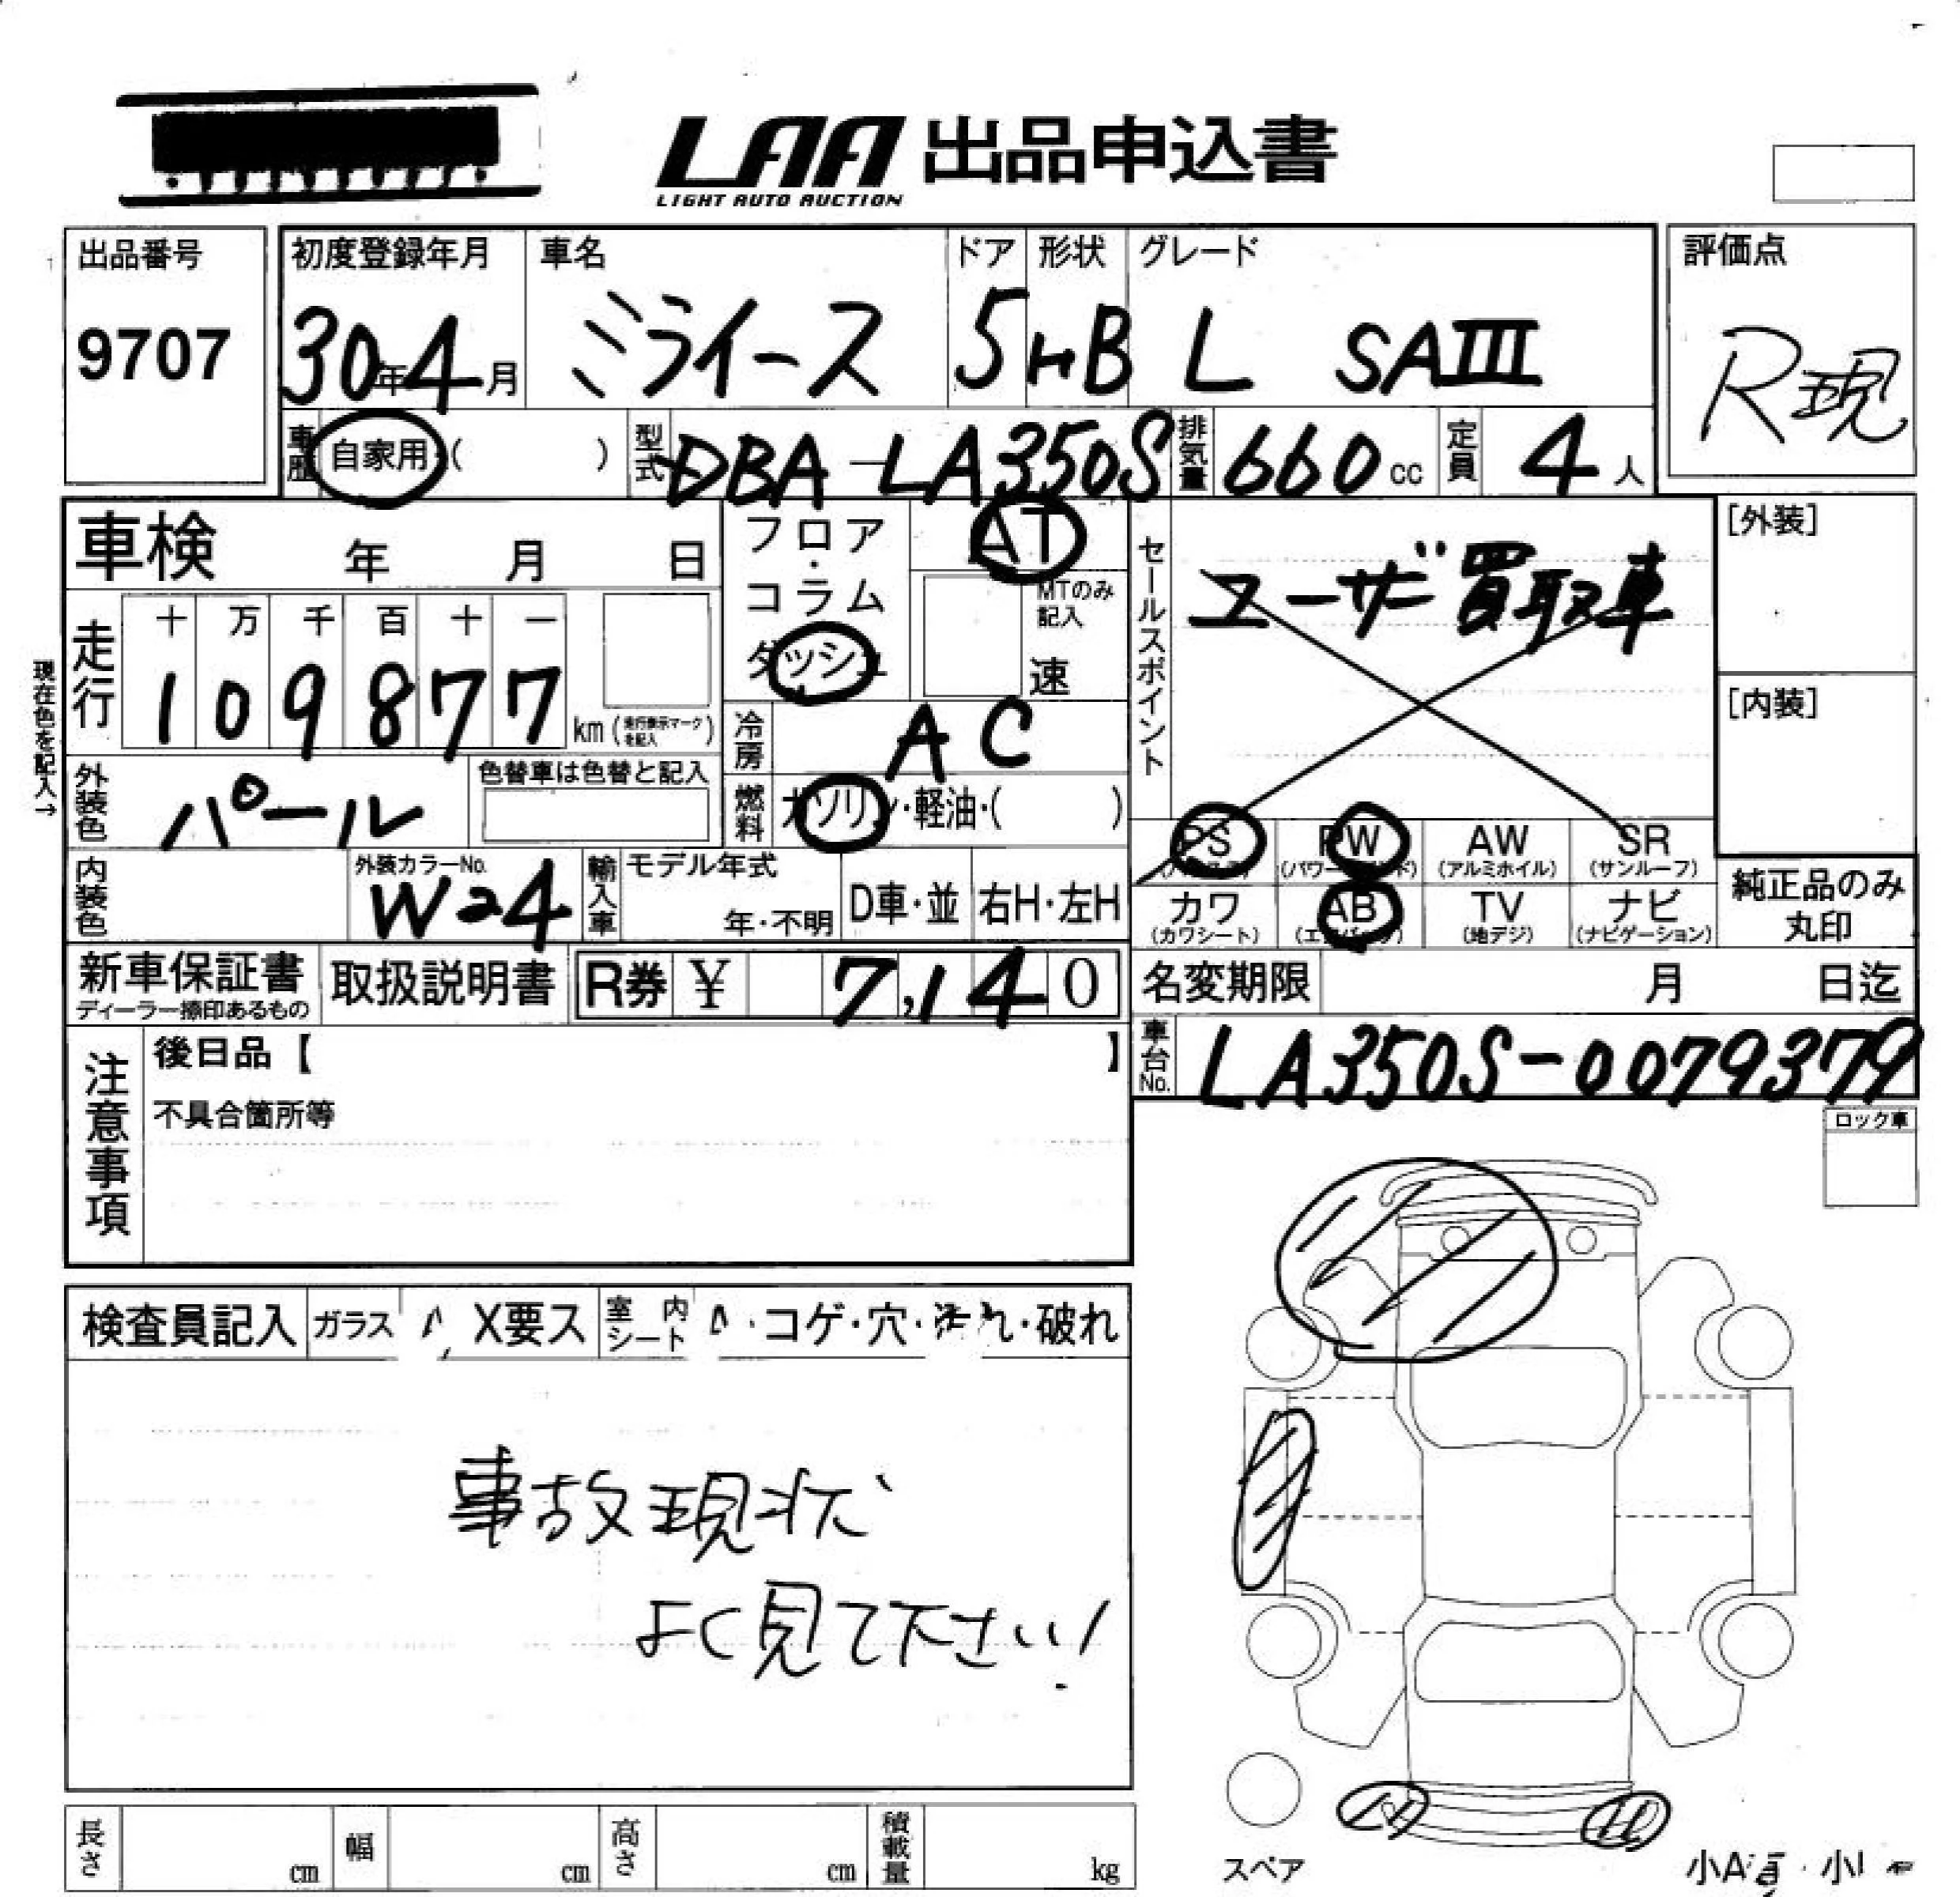 LAA 出品申込書
LIGHT AUTO AUCTION
出品番号
9707
初度登録年月
30年4月
車名
ミライース
ドア
5
形状
HB
グレード
L SAIII
評価点
R現
車歴 自家用・( )
型式 DBA-LA350S
排気量 660cc
定員 4人
車検 年 月 日
現在色を記入→
走行
十万千百十一
109877
km(走行表示マークを記入)
フロア・コラム
ダッシュ
AT
MTのみ記入
速
冷房 AC
燃料 ガソリン・軽油・( )
外装色 パール
色替車は色替と記入
内装色
外装カラーNo.
W24
輸入車
モデル年式
年・不明
D車・並
右H・左H
セールスポイント
ユーザー買取車
[外装]
[内装]
PS
PW
(パワーウインド)
AW
(アルミホイル)
SR
(サンルーフ)
カワ
(カワシート)
AB
(エアバッグ)
TV
(地デジ)
ナビ
(ナビゲーション)
純正品のみ
丸印
新車保証書
ディーラー捺印あるもの
取扱説明書
R券 ¥ 7,140
名変期限 月 日迄
車台No. LA350S-0079379
注意事項
後日品【 】
不具合箇所等
ロック車
検査員記入
ガラス
X要ス
室内シート
・コゲ・穴・汚れ・破れ
事故現状
よく見て下さい!
長さ cm
幅 cm
高さ cm
積載量 kg
スペア
小A